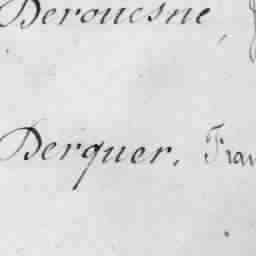 Derouesne,
Derquer. Fran